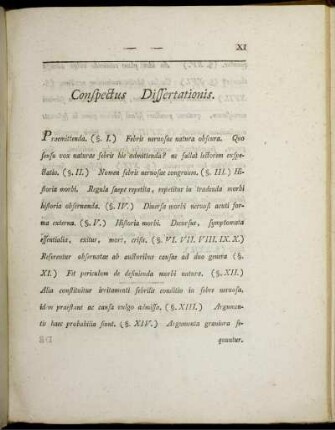 XI
Conspectus Dissertationis.
Praemittenda. (§. I.) Febris nervosae natura obscura. Quo
sensu vox naturae febris hic admittenda? ne fallat lectorem exspe-
ctatio. (§. II.) Nomen febris nervosae congruum. (§. III.) Hi-
storia morbi. Regula saepe repetita, repetitur in tradenda morbi
historia observanda. (§. IV.) Diversa morbi nervosi acuti for-
ma externa. (§. V.) Historia morbi. Decursus, symptomata
essentialia, exitus, mors, crisis. (§. VI. VII. VIII. IX. X.)
Referuntur observatae ab auctoribus causae ad duo genera (§.
XI.) Fit periculum de definienda morbi natura. (§. XII.)
Alia constituitur irritamenti febrilis conditio in febre nervosa,
idem praestans ac causa vulgo admissa. (§. XIII.) Argumen-
tis haec probabilia fiunt. (§. XIV.) Argumenta graviora se-
quuntur.